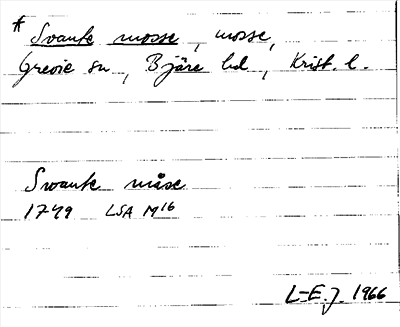 * Svante mosse, mosse,
Grevie sn, Bjäre hd, Krist. l.
Svante måse
1749 LSA M16
L-E. J. 1966